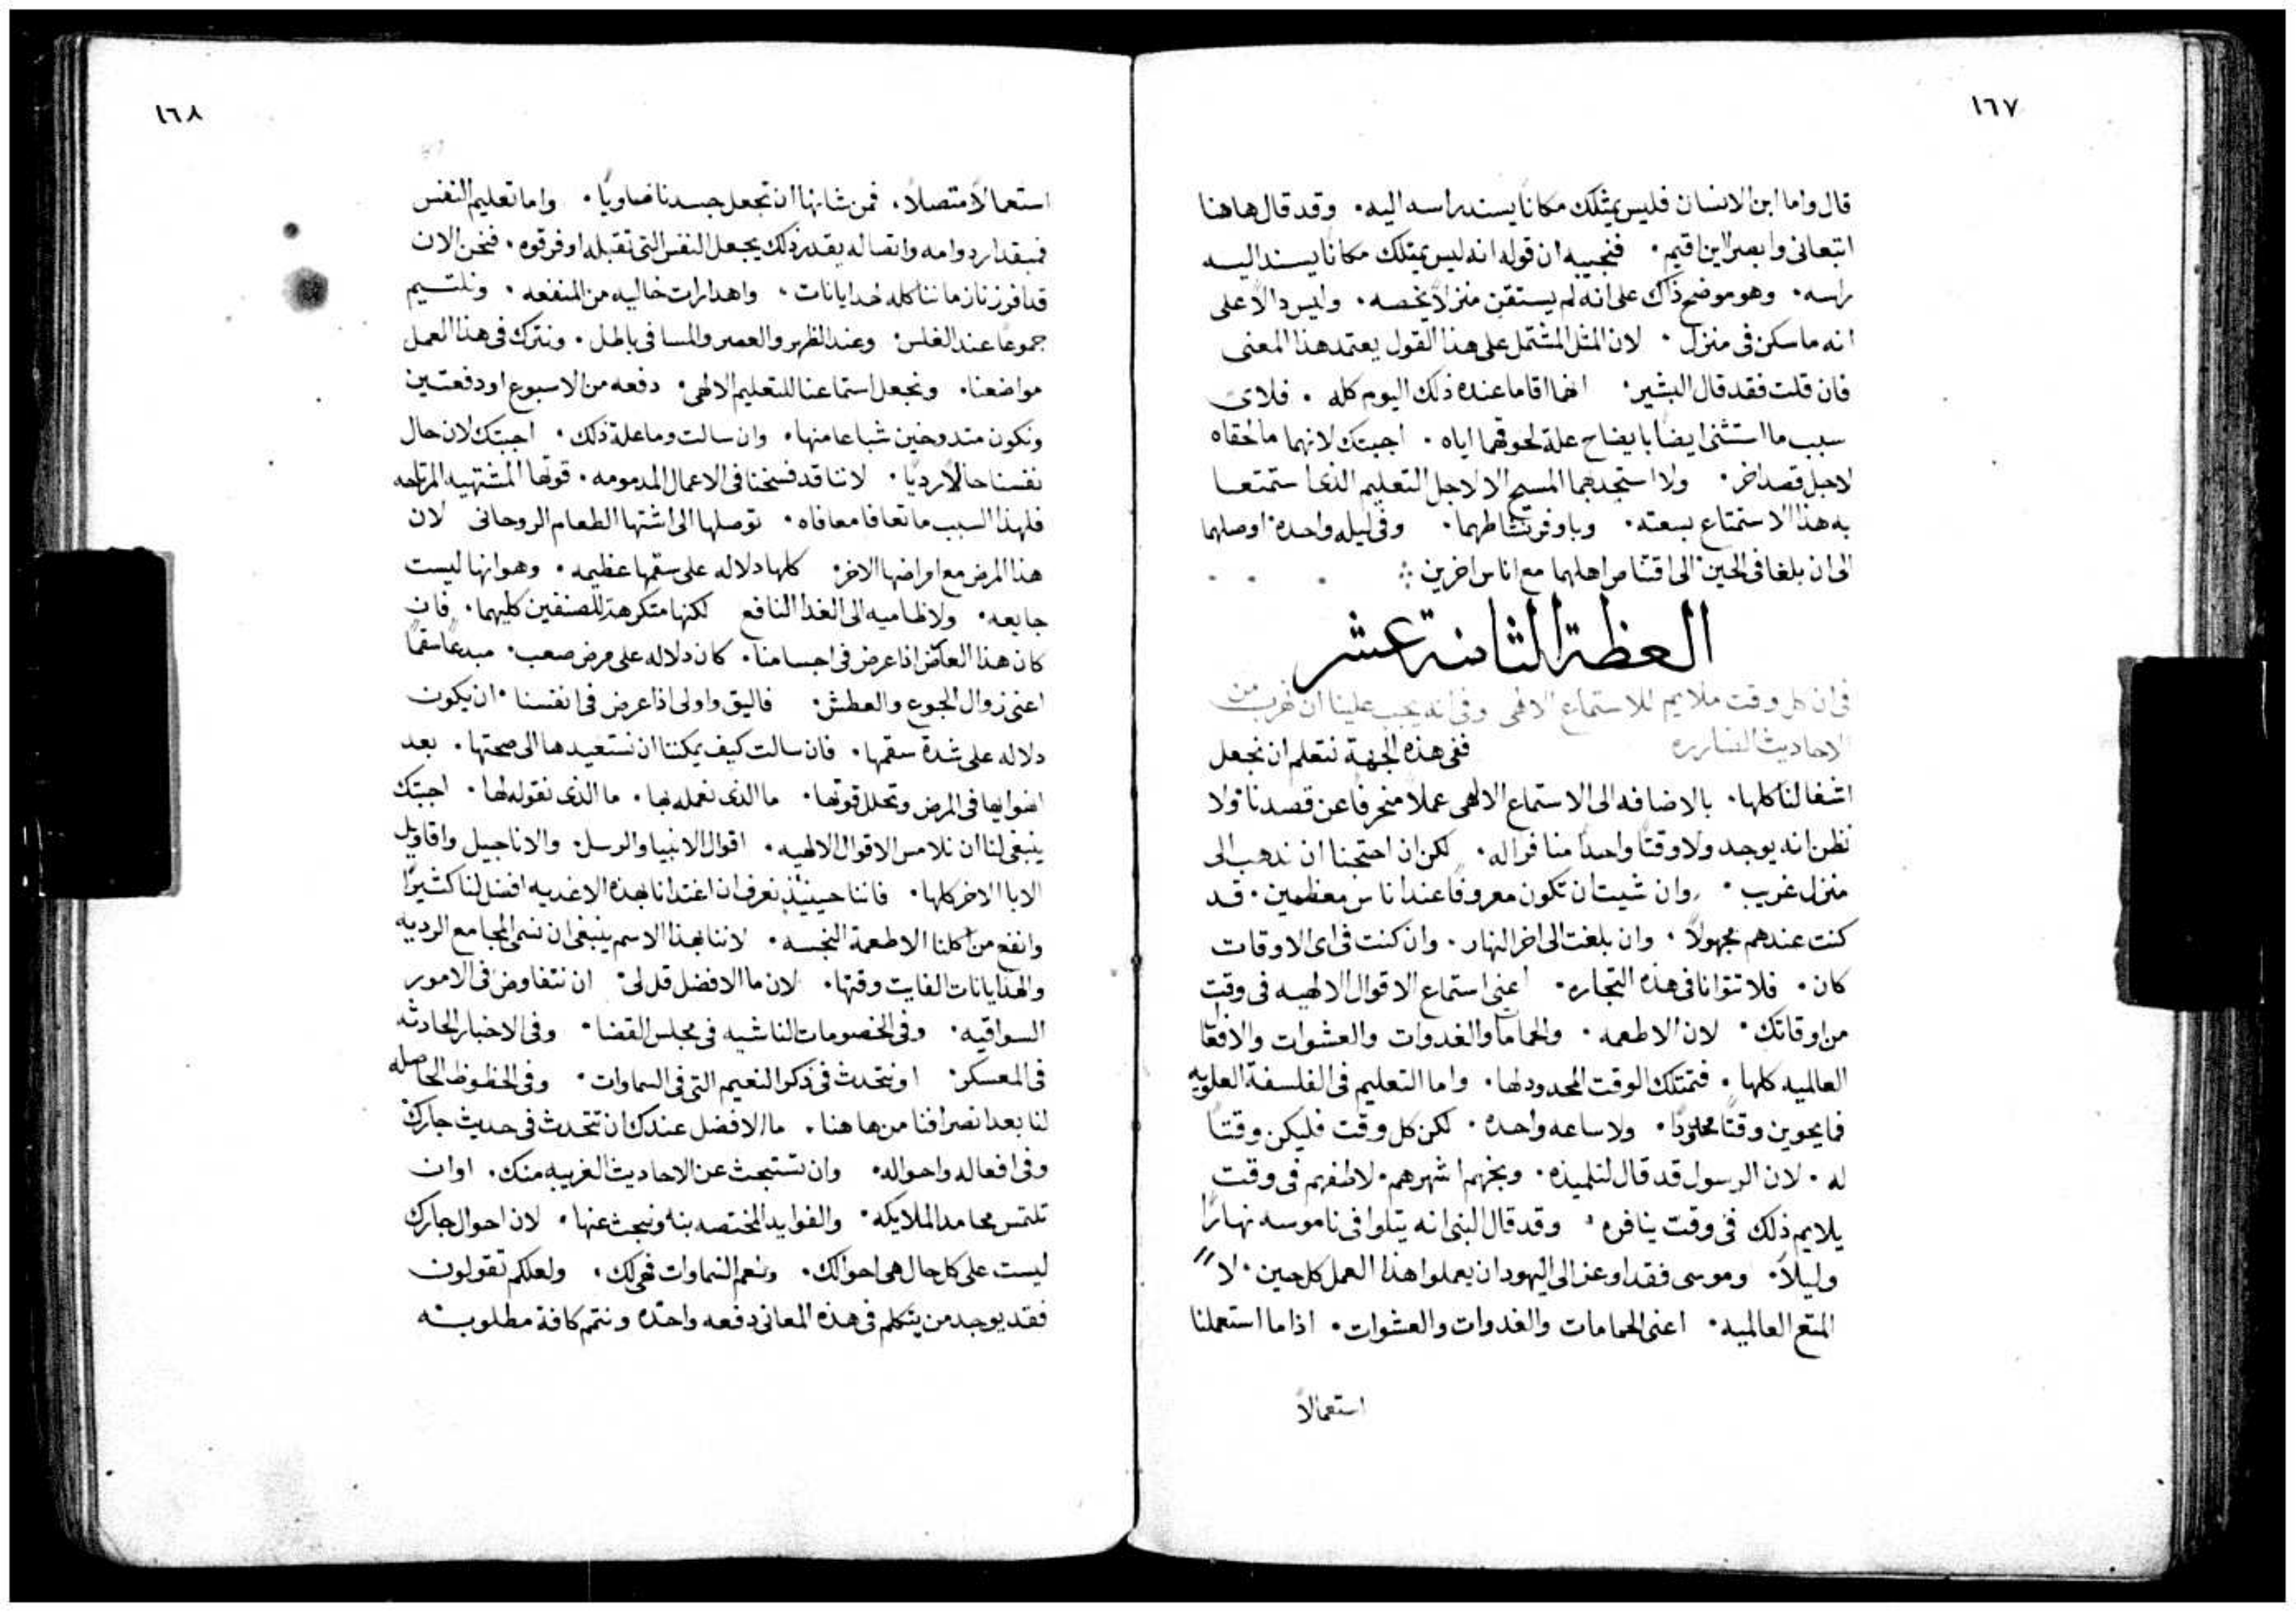 ١٦٧
قال واما ابن الانسان فليس يمتلك مكانًا يسند راسه اليه. وقد قال هاهنا
اتبعاني وابصرا اين اقيم. فنجيبه ان قوله انه ليس يمتلك مكانا يسند اليه
راسه. وهو موضح ذاك على انه لم يستقن منزلاً يخصه. وليس دالاً على
انه ما سكن في منزل. لان المثل المشتمل على هذا القول يعتمد هذا المعنى
فان قلت فقد قال البشير. انهما اقاما عنده ذلك اليوم كله. فلاي
سبب ما استثنى ايضًا بايضاح علة لحوقهما اياه. اجبتك لانهما ما لحقاه
لاجل قصد اخر. ولا استجدبهما المسيح الا لاجل التعليم الذي استمتعا
به هذا الاستمتاع بسعته. وباوفر نشاطهما. وفي ليله واحدة اوصلهما
الى ان بلغا في الحين الى اقتناص اهلهما مع اناس اخرين
العظة الثامنة عشر
في ان كل وقت ملايم للاستماع الالهي وفي انه يجب علينا ان نهرب من
الاحاديث الضارره ففي هذه الجهة نتعلم ان نجعل
اشغالنا كلها. بالاضافه الى الاستماع الالهي عملاً منحرفًا عن قصدنا ولا
نظن انه يوجد ولا وقتًا واحدًا منافرًا له. لكن ان احتجنا ان ندهب الى
منزل غريب. وان شيت ان تكون معروفًا عند اناس معظمين. قد
كنت عندهم مجهولاً. وان بلغت الى اخر النهار. وان كنت في اي الاوقات
كان. فلا تتوانا في هذه التجاره. اعني استماع الاقوال الالهيه في وقت
من اوقاتك. لان الاطعمه. والحمامات والغدوات والعشوات والافعال
العالميه كلها. فتمتلك الوقت المحدود لها. واما التعليم في الفلسفة العلويه
فما يحوين وقتًا محدودًا. ولا ساعه واحده. لكن كل وقت فليكن وقتًا
له. لان الرسول قد قال لتلميذه. وبخهم اشهرهم. لاطفهم في وقت
يلايم ذلك في وقت ينافره. وقد قال النبي انه يتلوا في ناموسه نهارًا
وليلاً. وموسى فقد اوعز الى اليهود ان يعملوا هذا العمل كل حين. لا
المتع العالميه. اعني الحمامات والغدوات والعشوات. اذا ما استعملنا
استعمالاً
١٦٨
استعمالاً متصلاً. فمن شانها ان تجعل جسدنا ضاويًا. واما تعليم النفس
فبمقدار دوامه واتصاله بقدر ذلك يجعل النفس التي تقبله اوفر قوه. فنحن الان
قد افرزنا زماننا كله لهدايانات. واهدارات خاليه من المنفعه. ونلتيم
جموعًا عند الغلس. وعند الظهر والعصر والمسا في باطل. ونترك في هذا العمل
مواضعنا. ونجعل استماعنا للتعليم الالهي. دفعه من الاسبوع او دفعتين
ونكون متدوخين شباعا منها. وان سالت وما علة ذلك. اجبتك لان حال
نفسنا حالاً رديًا. لاننا قد فسخنا في الاعمال المدمومه. قوتها المشتهيه المرتاحه
فلهذا السبب ما تعافا معافاه. توصلها الى اشتها الطعام الروحاني لان
هذا المرض مع امراضها الاخر. كلها دلاله على سقمها عظيمه. وهو انها ليست
جايعه. ولا ظاميه الى الغدا النافع لكنها متكرهة للصنفين كليهما. فان
كان هذا العارض اذا عرض في اجسامنا. كان دلاله على مرض صعب. مبدعًا سقمًا
اعني زوال الجوع والعطش. فاليق واولى اذا عرض في انفسنا. ان يكون
دلاله على شدة سقمها. فان سالت كيف يمكننا ان نستعيدها الى صحتها. بعد
انضوايها في المرض وتحلل قوتها. ما الذي نعمله بها. ما الذي نقوله لها. اجبتك
ينبغي لنا ان نلامس الاقوال الالهيه. اقوال الانبيا والرسل والاناجيل واقاويل
الابا الاخر كلها. فاننا حينيذ نعرف ان اغتدانا بهذه الاغديه افضل لنا كثيرًا
وانفع من اكلنا الاطعمة النجسه. لاننا بهذا الاسم ينبغي ان نسمي المجامع الرديه
والهدايانات الفايت وقتها. لان ما الافضل قل لي. ان نتفاوض في الامور
السواقيه. وفي الخصومات الناشيه في مجلس القضا. وفي الاخبار الحادثه
في المعسكر. او نتحدث في ذكر النعيم التي في السماوات. وفي الحظوظ الحاصله
لنا بعد انصرافنا من هاهنا. ما الافضل عندك ان تتحدث في حديث جارك
وفي افعاله واحواله. وان تستبحث عن الاحاديث الغريبه منك. او ان
تلتمس محامد الملايكه. والفوايد المختصه بنا ونبحث عنها. لان احوال جارك
ليست على كل حال هي احوالك. ونعم السماوات فهي لك. ولعلكم تقولون
فقد يوجد من يتكلم في هذه المعاني دفعه واحده ونتمم كافة مطلوبته